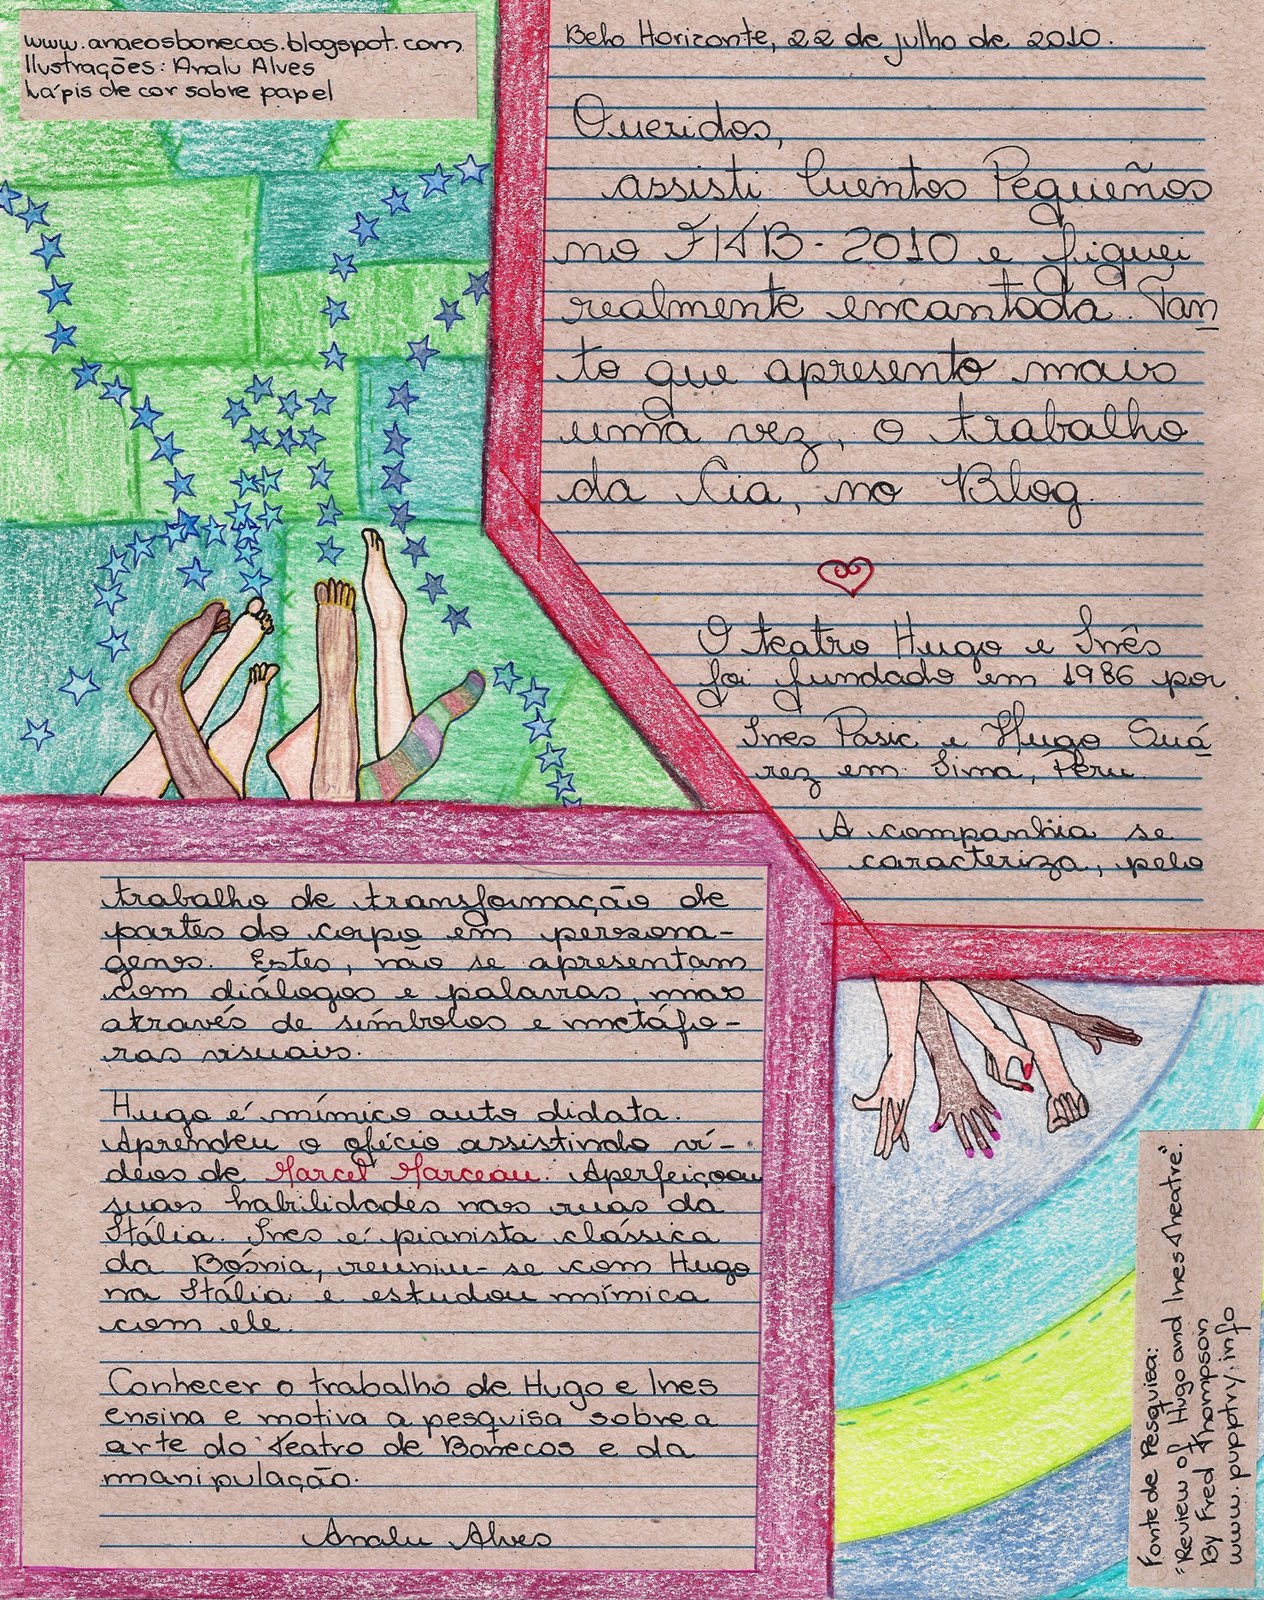 www.anaeosbonecos.blogspot.com
Ilustrações: Analu Alves
Lápis de cor sobre papel
Belo Horizonte, 22 de julho de 2010.
Queridos,
assisti Cuentos Pequeños
no FITB - 2010 e fiquei
realmente encantada. Tan
to que apresento mais
uma vez, o trabalho
da Cia, no Blog.
O teatro Hugo e Inês
foi fundado em 1986 por
Ines Pasic e Hugo Suá
rez em Lima, Peru.
A companhia se
caracteriza, pelo
trabalho de transformação de
partes do corpo em persona-
gens. Estes, não se apresentam
com diálogos e palavras, mas
através de símbolos e metáfo-
ras visuais.
Hugo é mímico auto didata.
Aprendeu o ofício assistindo ví-
deos de Marcel Marceau. Aperfeiçoou
suas habilidades nas ruas da
Itália. Ines é pianista clássica
da Bósnia, reuniu-se com Hugo
na Itália e estudou mímica
com ele.
Conhecer o trabalho de Hugo e Ines
ensina e motiva a pesquisa sobre a
arte do Teatro de Bonecos e da
manipulação.
Analu Alves
Fonte de Pesquisa:
"Review of Hugo and Ines Theatre".
By Fred Thompson
www.pupptry.info